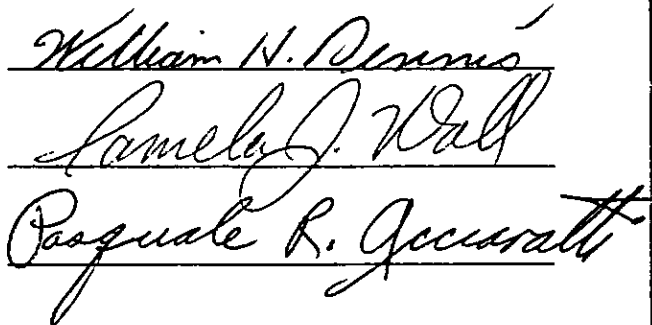 William H. Dennis
Pamela J. Wall
Pasquale R. Acciavatti